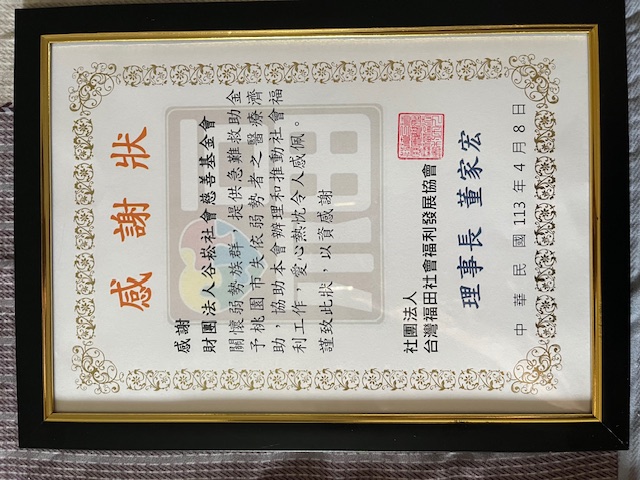 感謝狀
感謝
財團法人谷崧社會慈善基金會
關懷弱勢族群，提供急難救助金
予桃園市失依弱勢者之醫療濟
助，協助本會辦理和推動社會福
利工作，愛心熱忱令人感佩。
謹致此狀，以資感謝
社團法人
台灣福田社會福利發展協會
理事長 董家宏
中華民國 113 年 4 月 8 日